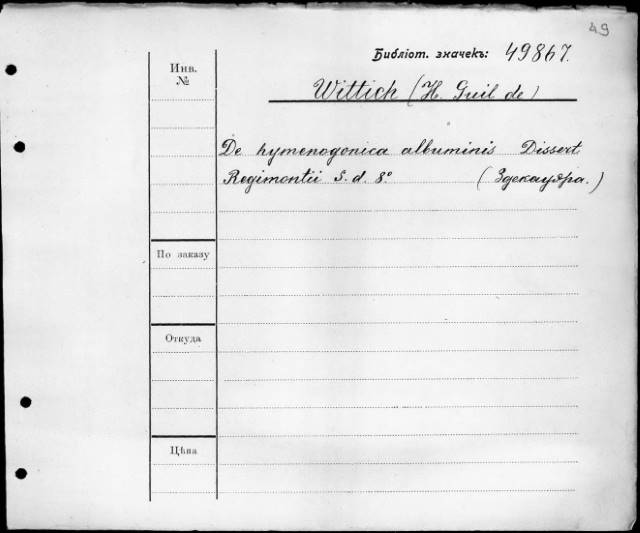 49
Библіот. значекъ: 49867.
Инв.
№
Wittich (H. Guil de)
De hymenogonica albuminis Dissert.
Regimontii S. d. 8º (Здекауэра.)
По заказу
Откуда
Цѣна